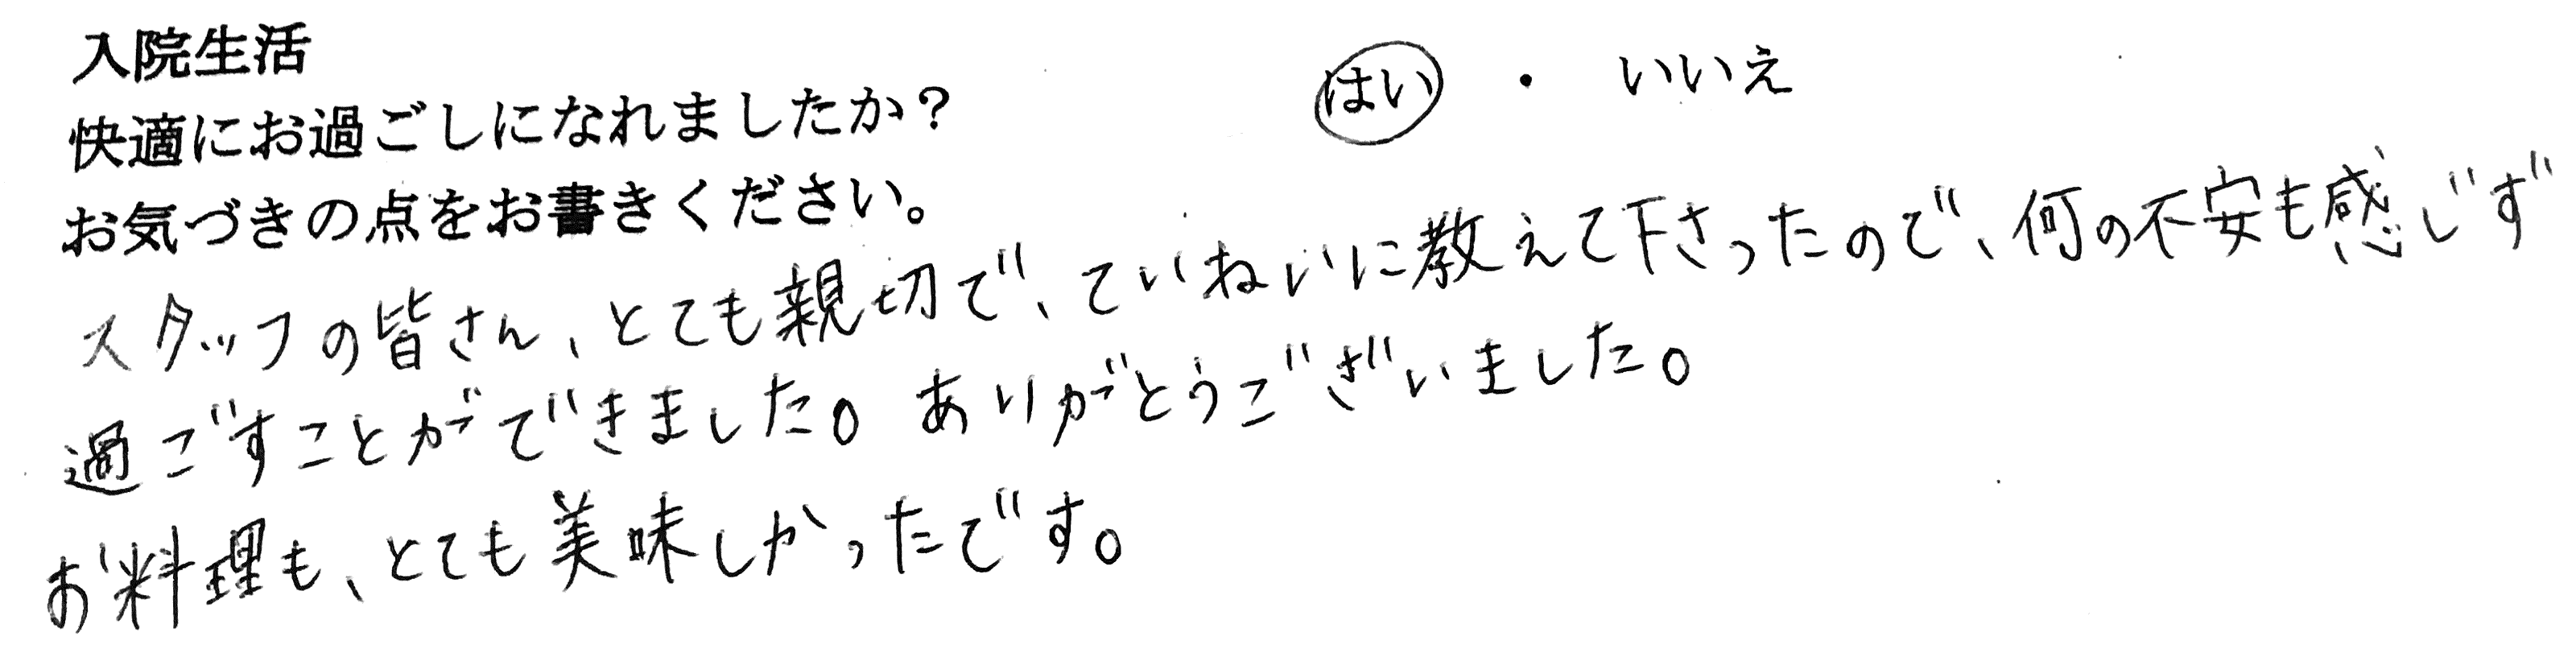 入院生活
快適にお過ごしになれましたか? はい ・ いいえ
お気づきの点をお書きください。
スタッフの皆さん、とても親切で、ていねいに教えて下さったので、何の不安も感じず
過ごすことができました。ありがとうございました。
お料理も、とても美味しかったです。